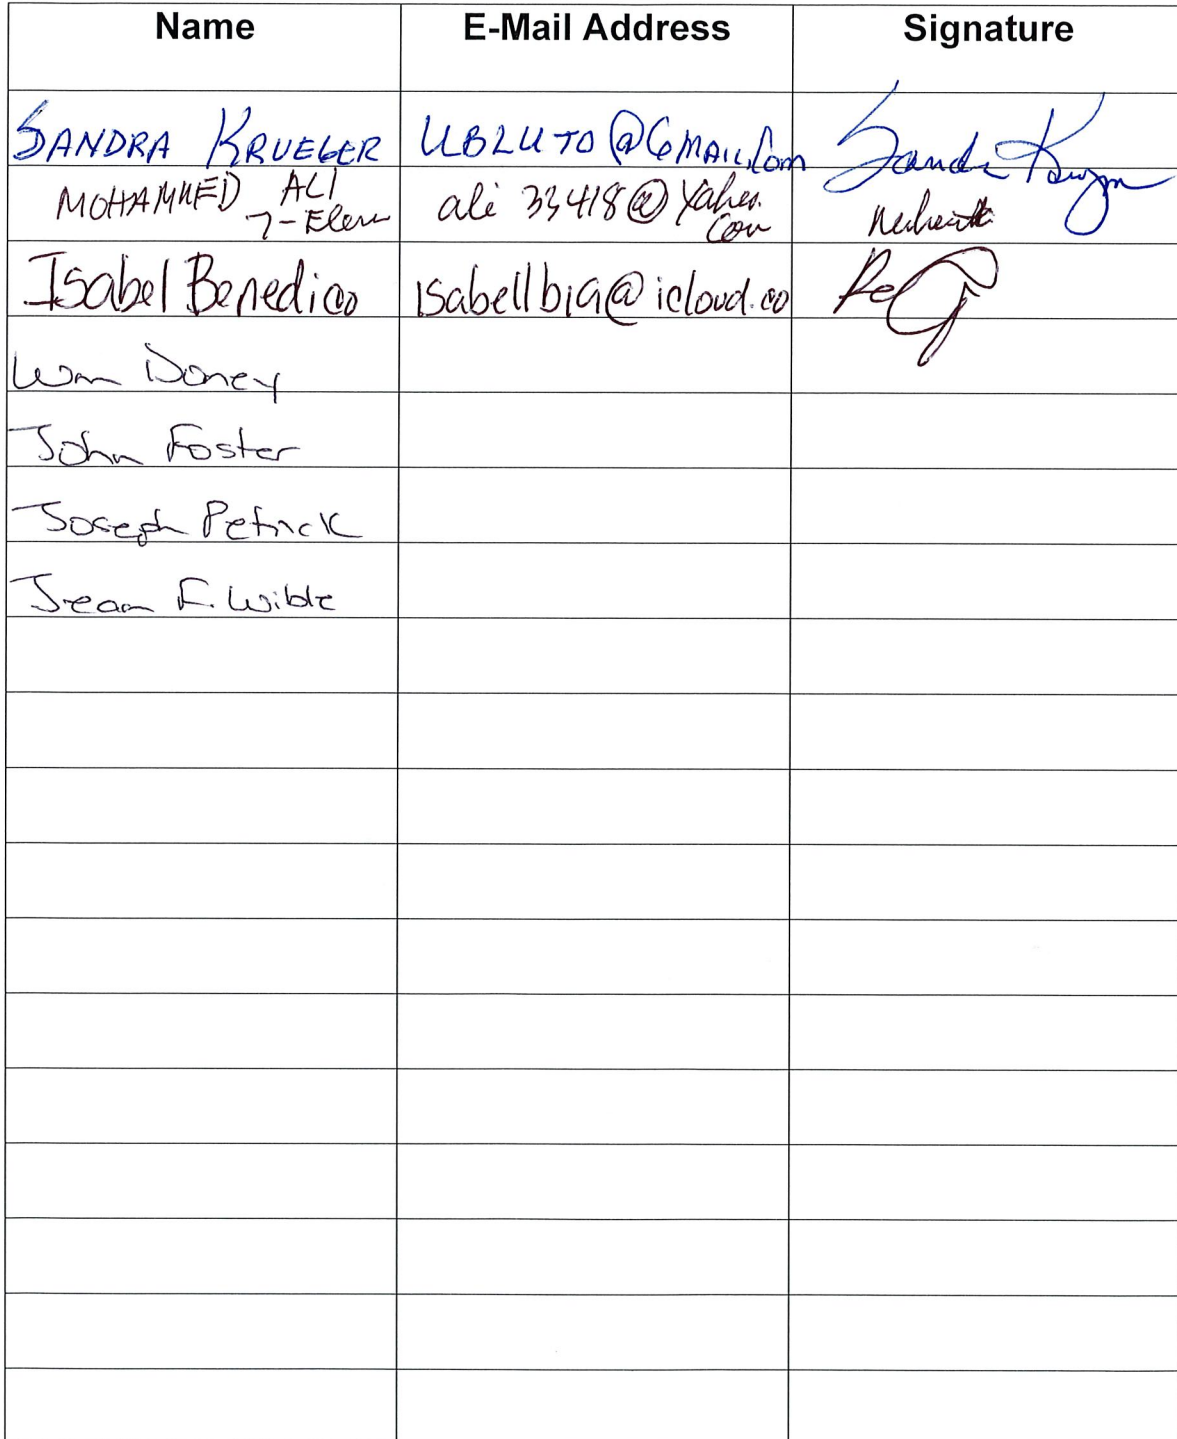 Name E-Mail Address Signature
SANDRA KRUEGER UBLUTO@GMAIL.Com
MOHAMMED ALI ali 33418@yahoo.
7-Eleven Com
Isabel Benedico Isabellb19@icloud.co
Wm Doney
John Foster
Joseph Petrick
Jean F. Wible